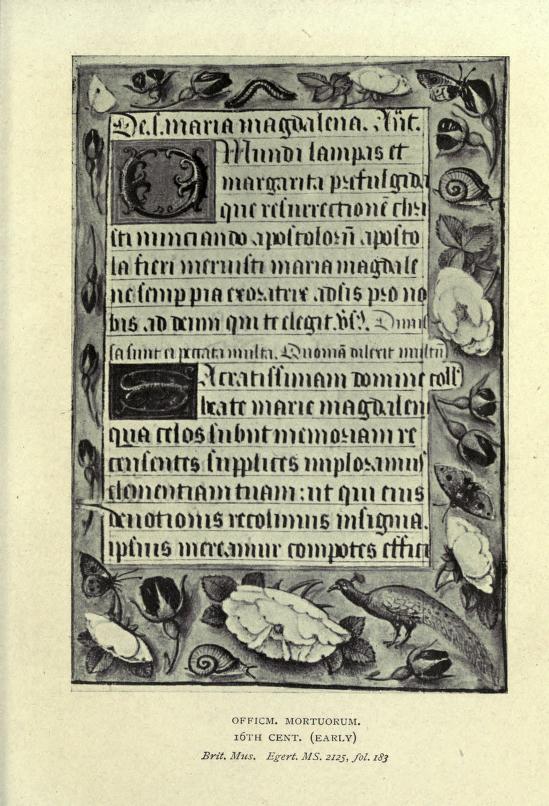 De s. maria magdalena. Añt.
O Mundi lampas et
margarita prefulgida
que resurrectionē chri
sti nunciando apostoloꝝ aposto
la fieri meruisti maria magdale
ne semp pia exoratrix adsis pro no
bis ad deum qui te elegit. Vs̄. Dimis
sa sunt ei peccata multa. Quoniā dilexit multū
Sacratissimam domine coll'
beate marie magdalene
qua celos subiit memoriam re
censentes supplices imploramus
clementiam tuam: ut qui eius
deuotionis recolimus insignia.
ipsius mereamur compotes effici
OFFICM. MORTUORUM.
16TH CENT. (EARLY)
Brit. Mus. Egert. MS. 2125, fol. 183